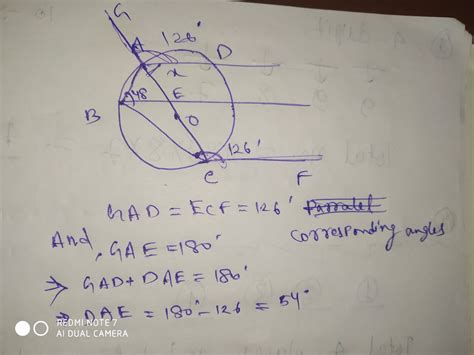 G
A 126°
D
x
B 48 E
O
126°
C F
GAD = ECF = 126° Parralel
Corresponding angles
And, GAE = 180°
⇒ GAD + DAE = 180°
⇒ DAE = 180° - 126 = 54°
REDMI NOTE 7
AI DUAL CAMERA